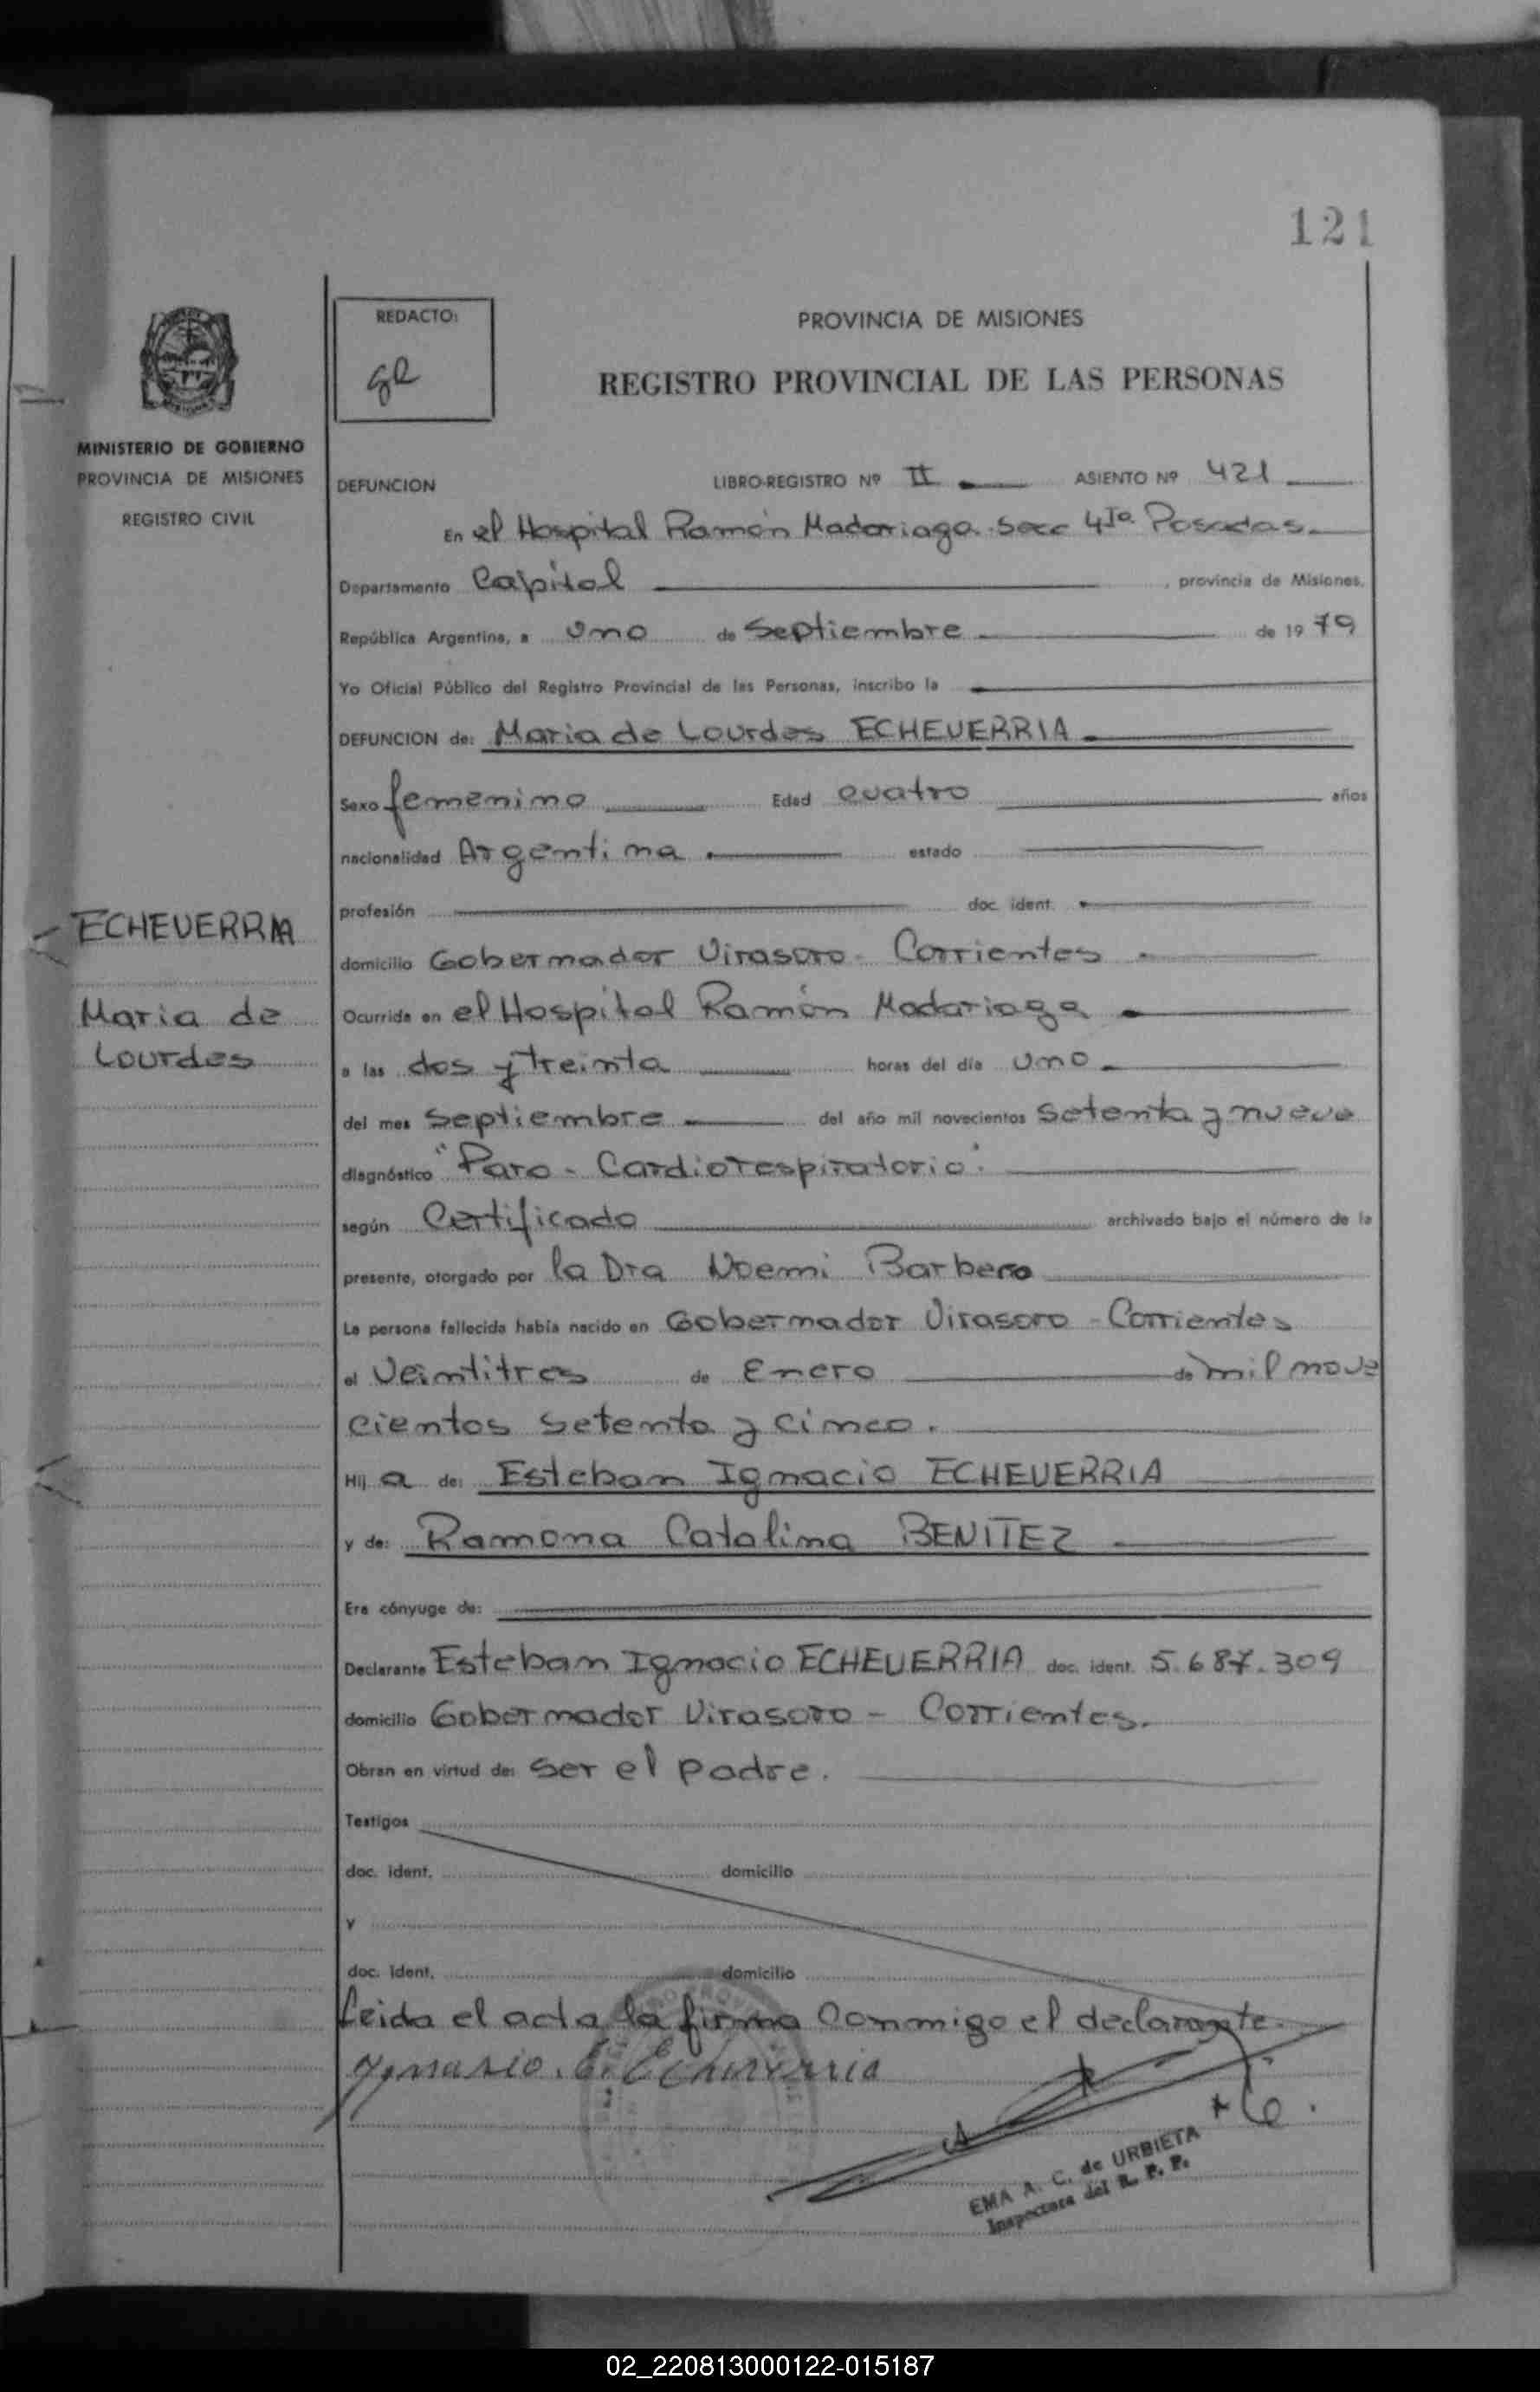 121
REDACTO:
PROVINCIA DE MISIONES
REGISTRO PROVINCIAL DE LAS PERSONAS
MINISTERIO DE GOBIERNO
PROVINCIA DE MISIONES
REGISTRO CIVIL
DEFUNCION LIBRO-REGISTRO Nº II ASIENTO Nº 421
En el Hospital Ramón Madariaga. Secc 4ta. Posadas.
Departamento Capital , provincia de Misiones.
República Argentina, a uno de Septiembre de 1979
Yo Oficial Público del Registro Provincial de las Personas, inscribo la
DEFUNCION de: Maria de Lourdes ECHEVERRIA
Sexo femenino Edad cuatro años
nacionalidad Argentina estado
profesión doc. ident.
ECHEVERRIA
Maria de
Lourdes
domicilio Gobernador Virasoro - Corrientes
Ocurrida en el Hospital Ramón Madariaga
a las dos y treinta horas del día uno
del mes Septiembre del año mil novecientos setenta y nueve
diagnóstico "Paro - Cardiorespiratorio"
según Certificado archivado bajo el número de la
presente, otorgado por la Dra Noemi Barbero
La persona fallecida había nacido en Gobernador Virasoro - Corrientes
el Veintitres de Enero de mil nove
cientos setenta y cinco.
Hij a de: Esteban Ignacio ECHEVERRIA
y de: Ramona Catalina BENITEZ
Era cónyuge de:
Declarante Esteban Ignacio ECHEVERRIA doc. ident. 5.687.309
domicilio Gobernador Virasoro - Corrientes.
Obran en virtud de: ser el padre.
Testigos
doc. ident. domicilio
y
doc. ident. domicilio
Leida el acta la firma conmigo el declarante.
Ignasio. E. Echeverria
EMA A. C. de URBIETA
Inspectora del R. P. P.
02_220813000122-015187